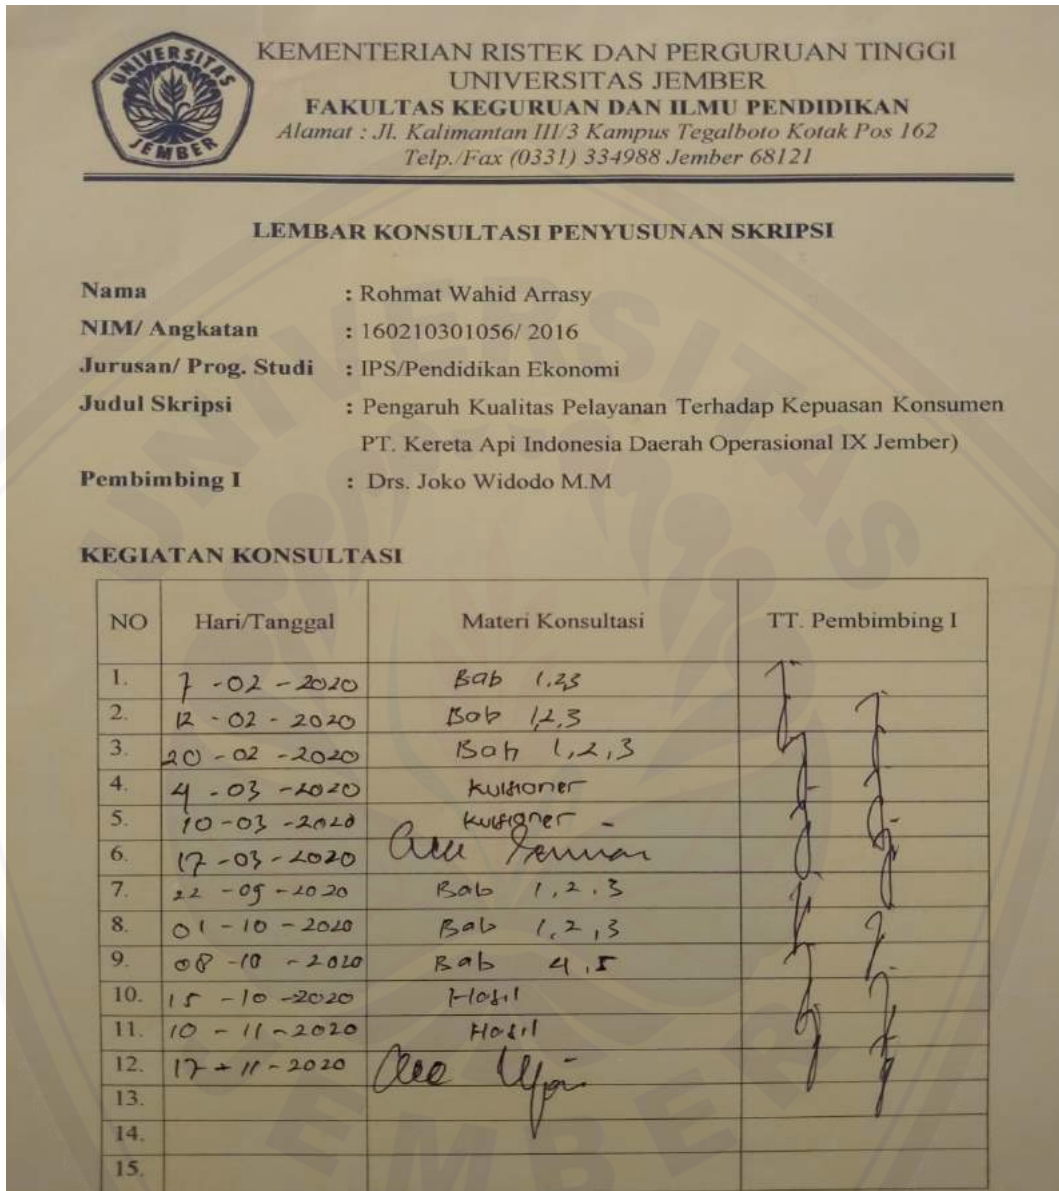 UNIVERSITAS JEMBER
KEMENTERIAN RISTEK DAN PERGURUAN TINGGI
UNIVERSITAS JEMBER
FAKULTAS KEGURUAN DAN ILMU PENDIDIKAN
Alamat : Jl. Kalimantan III/3 Kampus Tegalboto Kotak Pos 162
Telp./Fax (0331) 334988 Jember 68121
LEMBAR KONSULTASI PENYUSUNAN SKRIPSI
Nama : Rohmat Wahid Arrasy
NIM/ Angkatan : 160210301056/ 2016
Jurusan/ Prog. Studi : IPS/Pendidikan Ekonomi
Judul Skripsi : Pengaruh Kualitas Pelayanan Terhadap Kepuasan Konsumen
PT. Kereta Api Indonesia Daerah Operasional IX Jember)
Pembimbing I : Drs. Joko Widodo M.M
KEGIATAN KONSULTASI
NO Hari/Tanggal Materi Konsultasi TT. Pembimbing I
1. 7 -02 -2020 Bab 1,2,3
2. 12 - 02 - 2020 Bab 1,2,3
3. 20 - 02 -2020 Bab 1,2,3
4. 4 -03 -2020 Kuisioner
5. 10-03 -2020 Kuisioner
6. 17-03-2020 Acc Seminar
7. 22 -09 -2020 Bab 1,2,3
8. 01 -10 -2020 Bab 1,2,3
9. 08 -10 -2020 Bab 4,5
10. 15 -10 -2020 Hasil
11. 10 - 11 -2020 Hasil
12. 17 - 11 - 2020 Acc Ujian
13.
14.
15.
UNIVERSITAS JEMBER